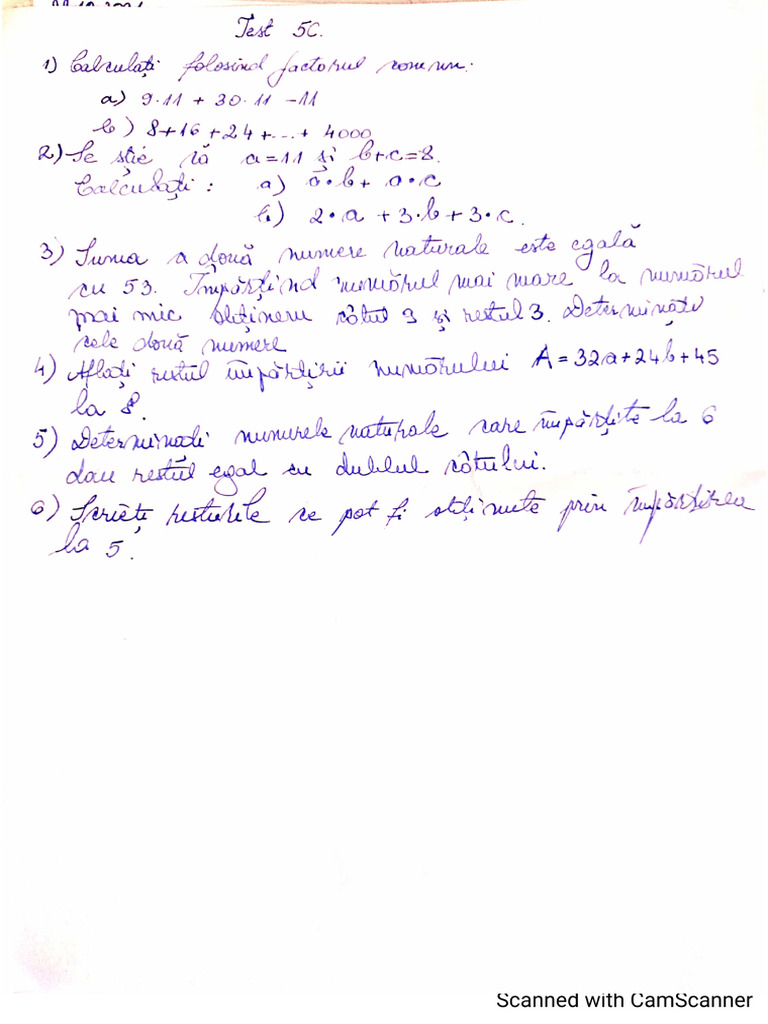 Test 5C.
1) Calculați folosind factorul comun:
a) 9·11 + 30·11 - 11
b) 8+16+24+...+ 4000
2) Se știe că a=11 și b+c=8.
Calculați: a) a·b + a·c
b) 2·a + 3·b + 3·c.
3) Suma a două numere naturale este egală
cu 53. Împărțind numărul mai mare la numărul
mai mic obținem câtul 9 și restul 3. Determinați
cele două numere
4) Aflați restul împărțirii numărului A = 32a+24b+45
la 8.
5) Determinați numerele naturale care împărțite la 6
dau restul egal cu dublul câtului.
6) Scrieți resturile ce pot fi obținute prin împărțirea
la 5.
Scanned with CamScanner